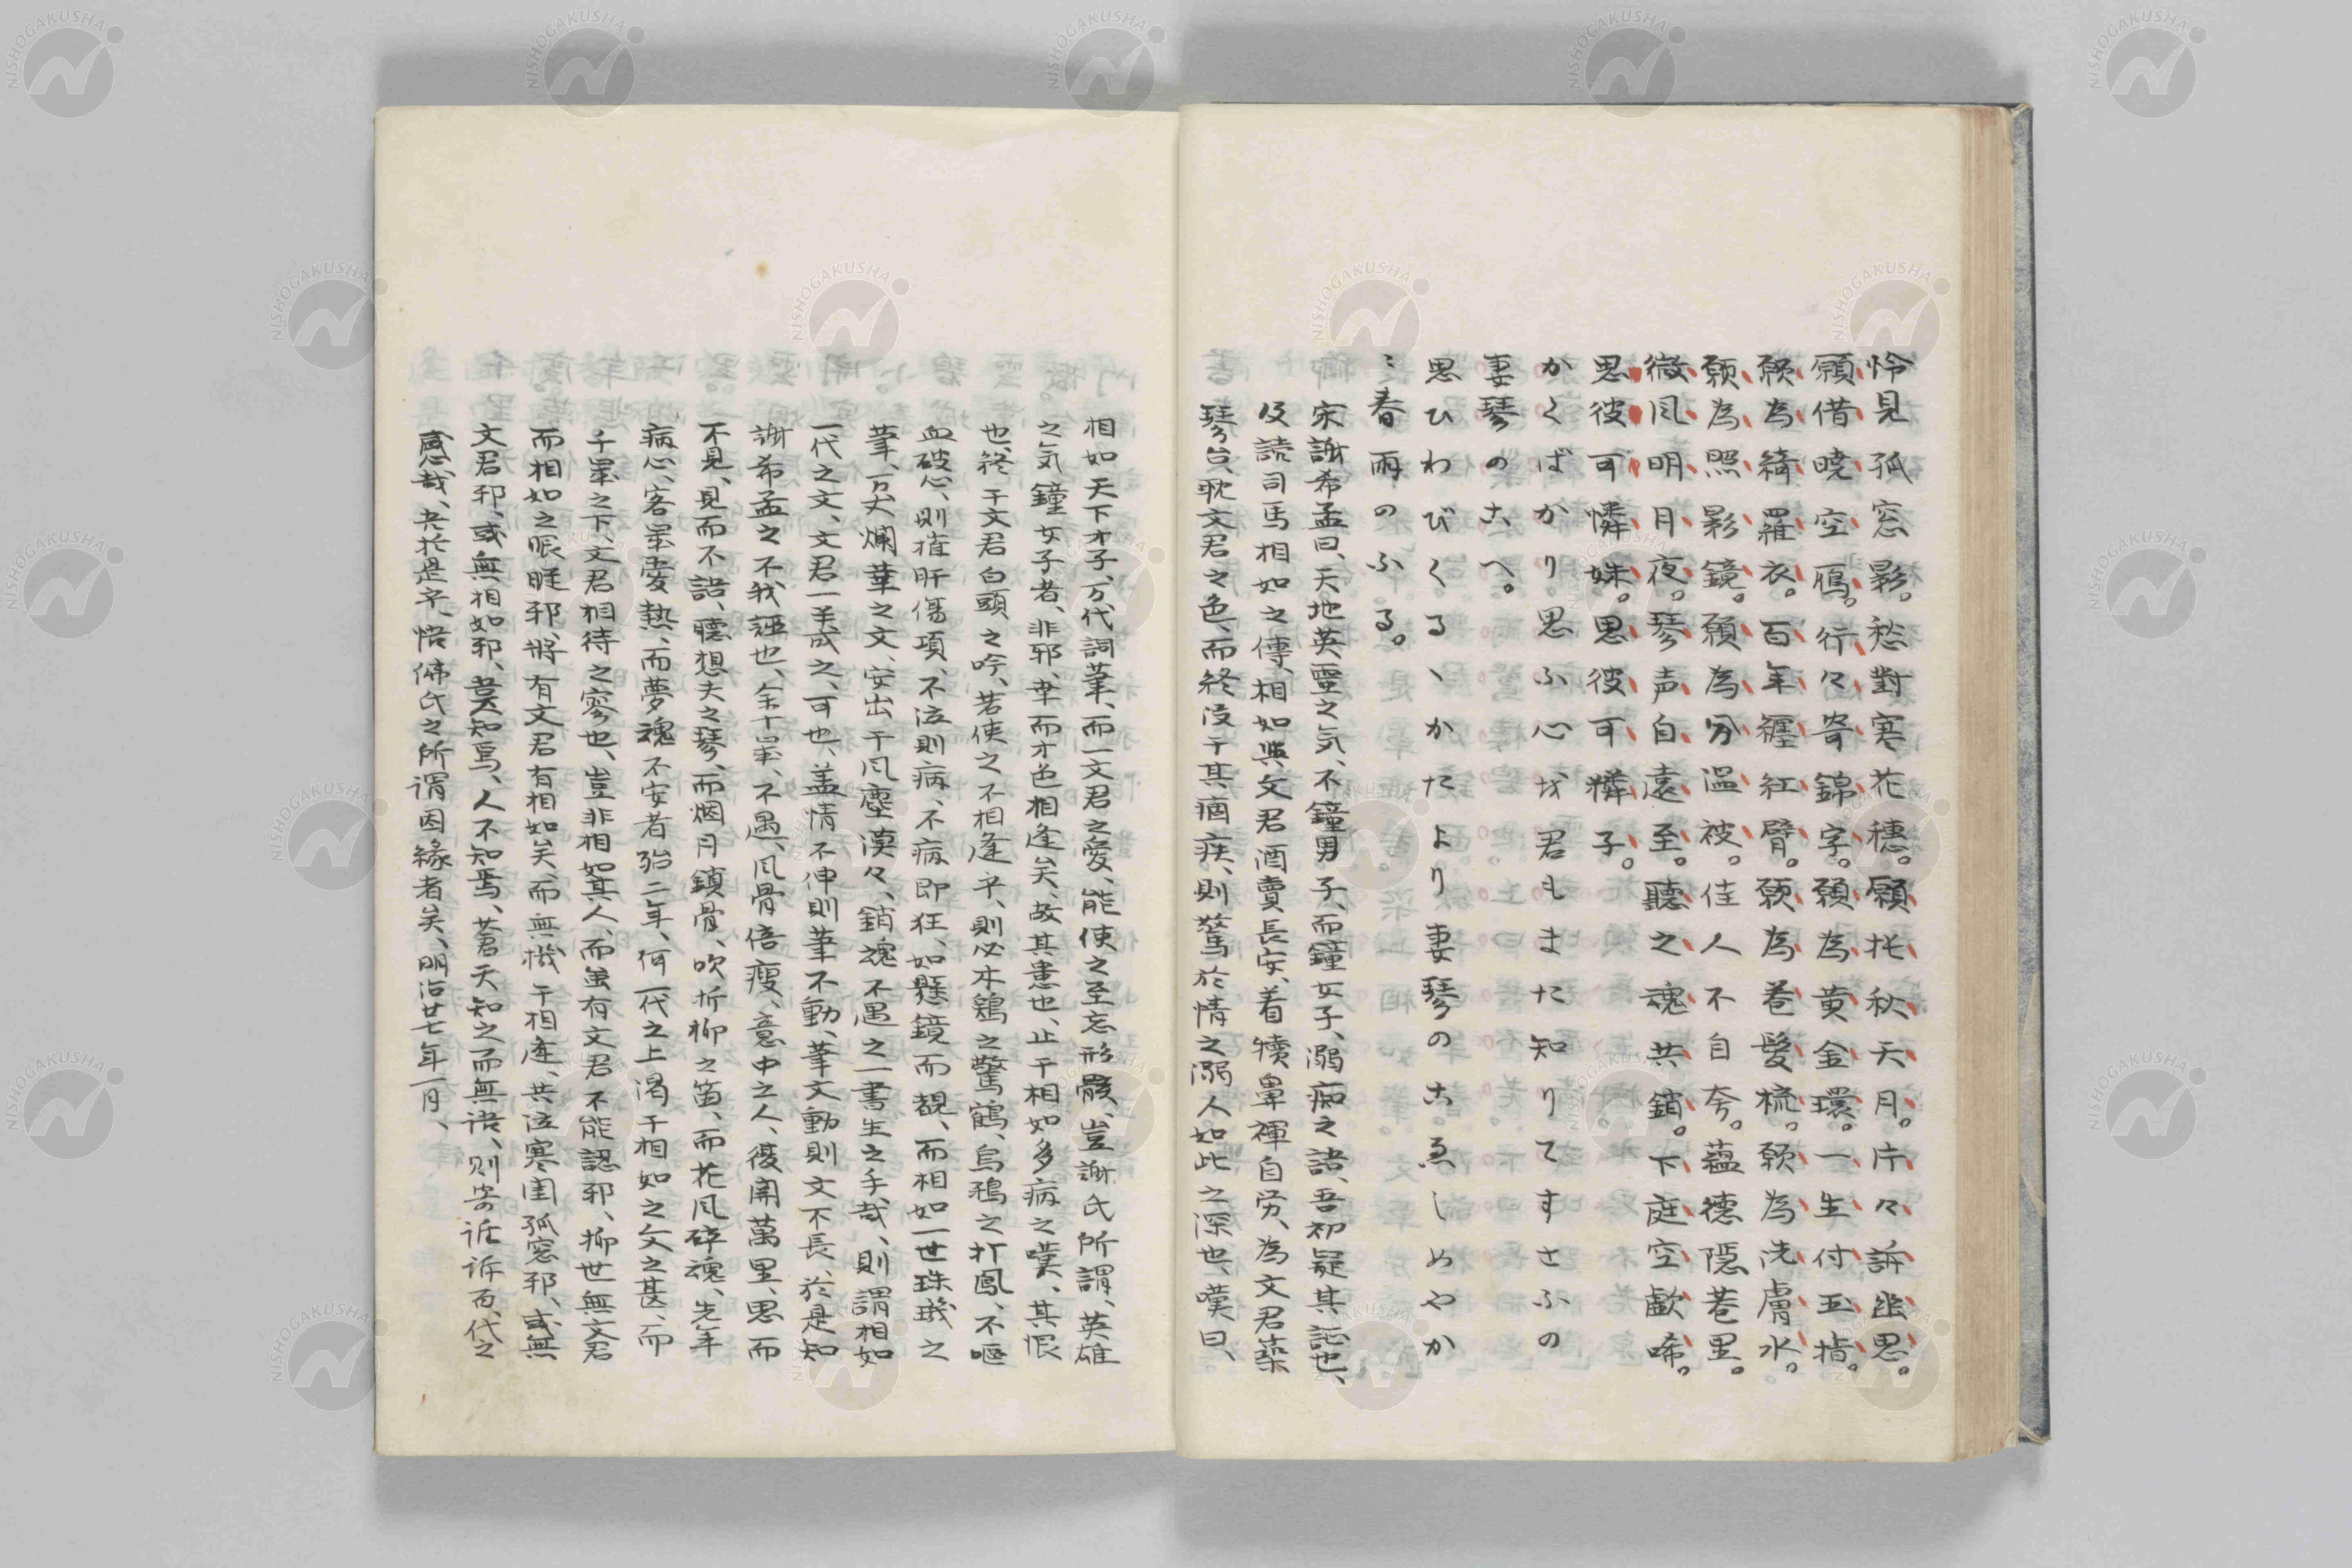 怜見孤窓影。愁對寒花穗。願托秋天月。片々訴幽思。
願借暁空鴈。行々寄錦字。願為黄金環。一生付玉指。
願為綺羅衣。百年纒紅臂。願為巻髪梳。願為洗膚水。
願為照影鏡。願為分温被。佳人不自夸。蘊德隠巷里。
微風明月夜。琴声自遠至。聽之魂共銷。下庭空歔唏。
思彼可憐姝。思彼可憐子。
かくばかり思ふ心を君もまた知りてすさふの
妻琴のこへ。
思ひわびくるゝかたより妻琴のこゑしめやか
ミ春雨のふる。
宋謝希孟曰、天地英靈之気、不鐘男子、而鐘女子、溺痴之語、吾初疑其誕也、
及読司馬相如之傳、相如與文君酒賣長安、着犢鼻褌自労、為文君築
琴台、耽文君之色、而終没于其痼疾、則驚於情之溺人如此之深也、嘆曰、
相如天下才子、万代詞筆、而一文君之愛、能使之至忘形骸、豈謝氏所謂、英雄
之気鐘女子者、非邪、幸而才色相逢矣、故其患也、止于相如多病之嘆、其恨
也、終于文君白頭之吟、若使之不相逢乎、則必木鶏之驚鶴、烏鴉之打鳳、不嘔
血破心、則摧肝傷項、不泣則病、不病即狂、如懸鏡而覩、而相如一世珠璣之
筆、万丈爛華之文、安出于風塵漠々、銷魂不遇之一書生之手哉、則謂相如
一代之文、文君一半成之、可也、盖情不伸則筆不動、筆文動則文不長、於是知
謝希孟之不我誣也、余十歳、不遇、風骨倍痩、意中之人、復閉萬里、思而
不見、見而不語、聴想夫之琴、而烟月鎖骨、吹折柳之笛、而花風砕魂、先年
病心、客歳憂熱、而夢魂不安者殆二年、何一代之上渇于相如之文之甚、而
千歳之下、文君相待之寥也、豈非相如其人、而雖有文君不能認邪、抑世無文君
而相如之眼眶邪、将有文君有相如矣、而無機于相逢、共泣寒閨孤窓邪、或無
文君邪、或無相如邪、莫知焉、人不知焉、蒼天知之而無語、則寄誰訴百代之
感哉、於是乎、悟佛氏之所謂因縁者矣、明治廿七年一月、